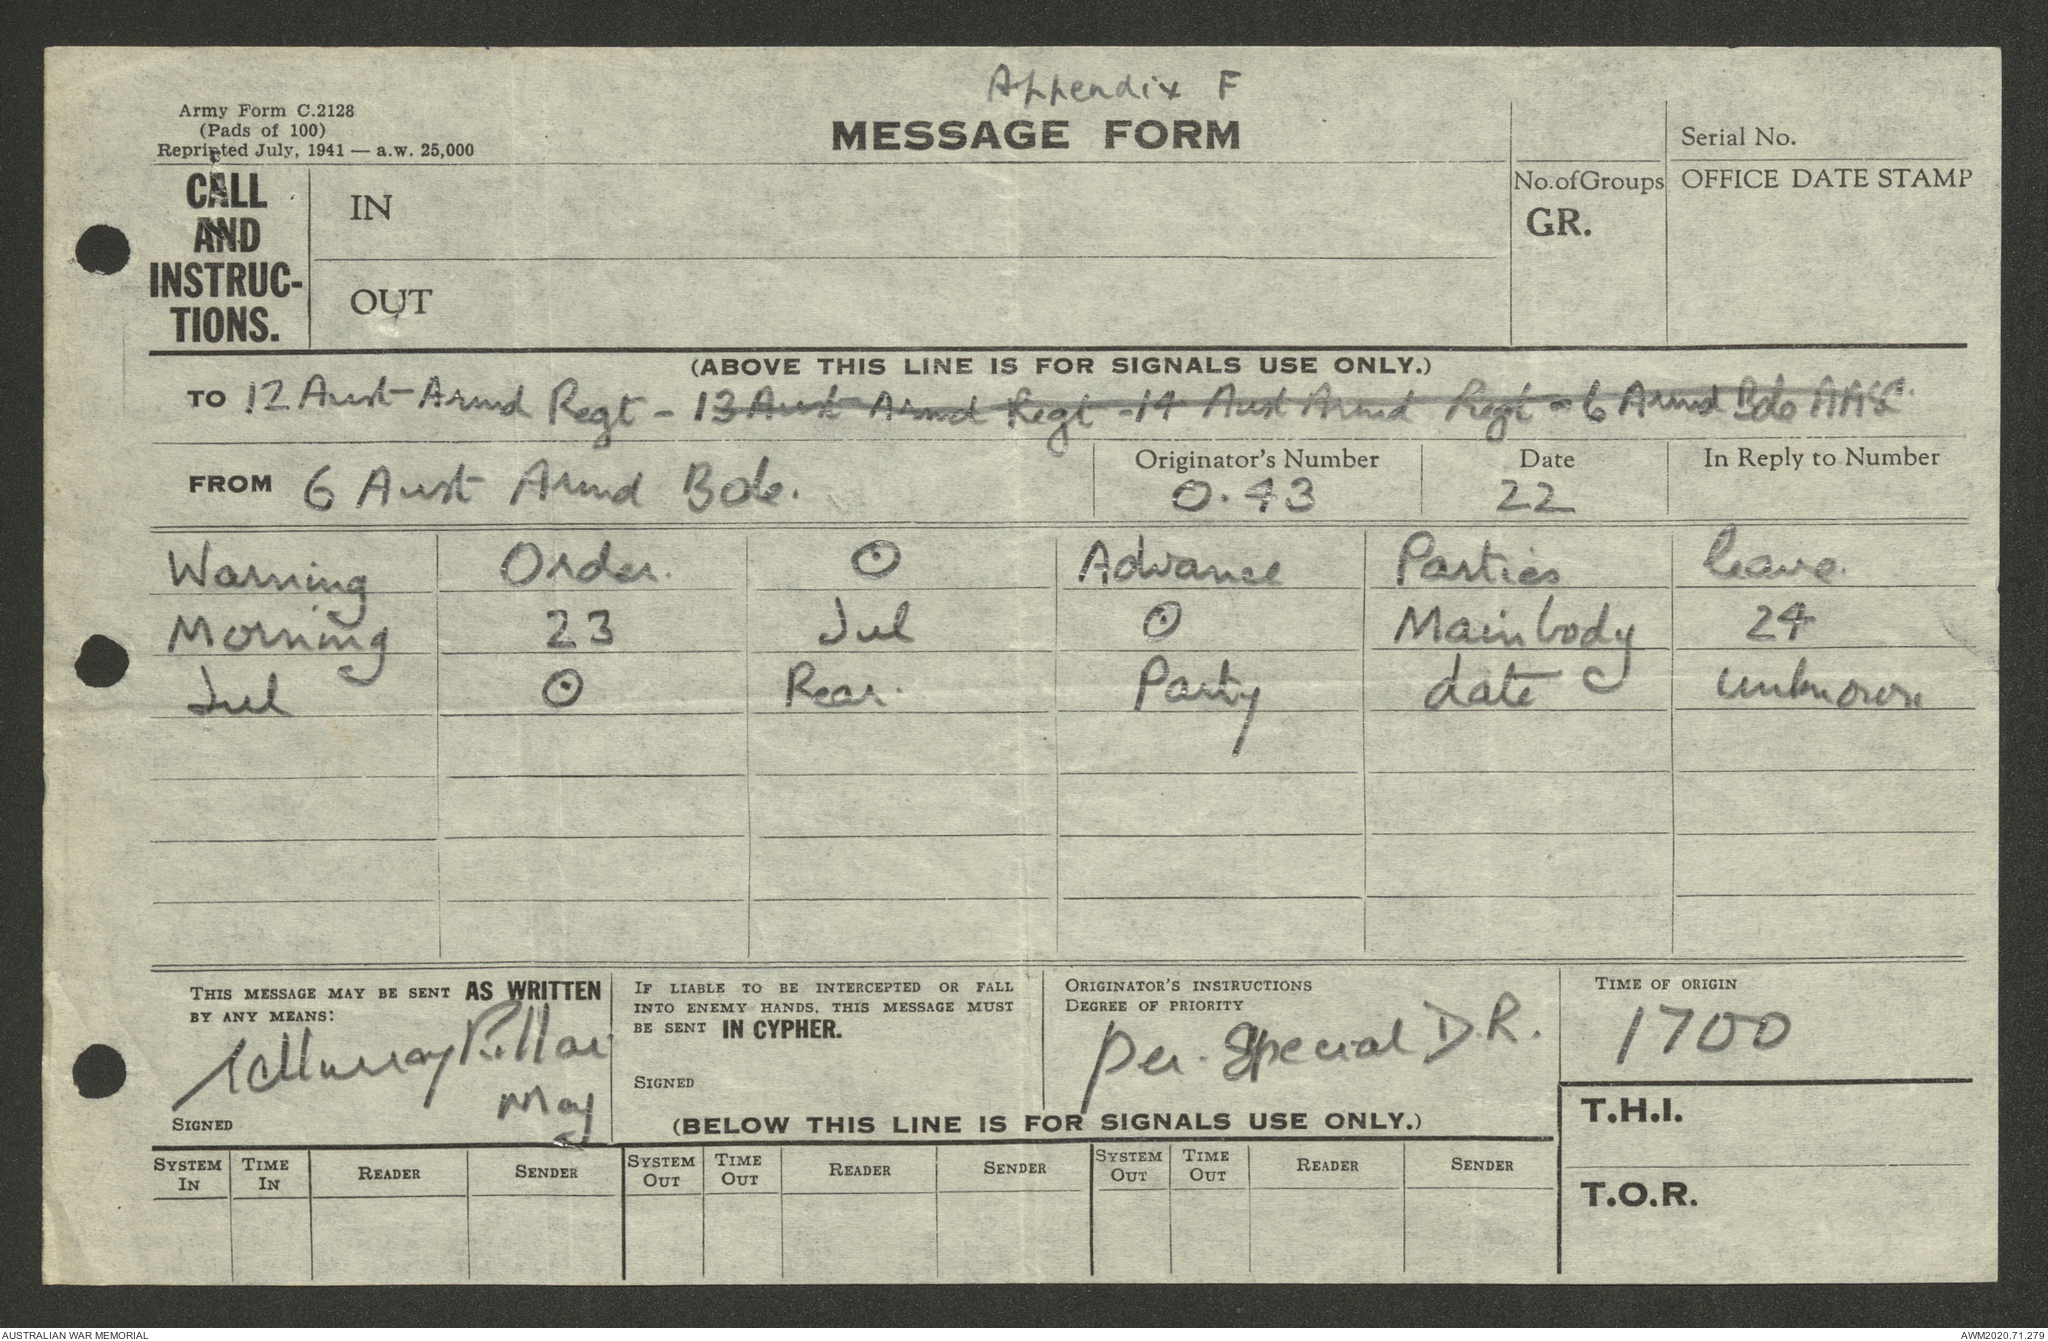 Appendix F
Army Form C.2128
(Pads of 100)
Reprinted July, 1941 — a.w. 25,000
MESSAGE FORM
Serial No.
CALL
AND
INSTRUC-
TIONS.
IN
OUT
No. of Groups
GR.
OFFICE DATE STAMP
(ABOVE THIS LINE IS FOR SIGNALS USE ONLY.)
TO 12 Aust Armd Regt - 13 Aust Armd Regt - 14 Aust Armd Regt - 6 Armd Bde AASC
FROM 6 Aust Armd Bde.
Originator's Number
O.43
Date
22
In Reply to Number
Warning Order. ⊙ Advance Parties leave
Morning 23 Jul ⊙ Main body 24
Jul ⊙ Rear. Party date unknown
THIS MESSAGE MAY BE SENT AS WRITTEN
BY ANY MEANS:
Murray
Maj
SIGNED
IF LIABLE TO BE INTERCEPTED OR FALL
INTO ENEMY HANDS, THIS MESSAGE MUST
BE SENT IN CYPHER.
SIGNED
ORIGINATOR'S INSTRUCTIONS
DEGREE OF PRIORITY
per. Special D.R.
TIME OF ORIGIN
1700
(BELOW THIS LINE IS FOR SIGNALS USE ONLY.)
T.H.I.
T.O.R.
SYSTEM IN TIME IN READER SENDER SYSTEM OUT TIME OUT READER SENDER SYSTEM OUT TIME OUT READER SENDER
AUSTRALIAN WAR MEMORIAL
AWM2020.71.279